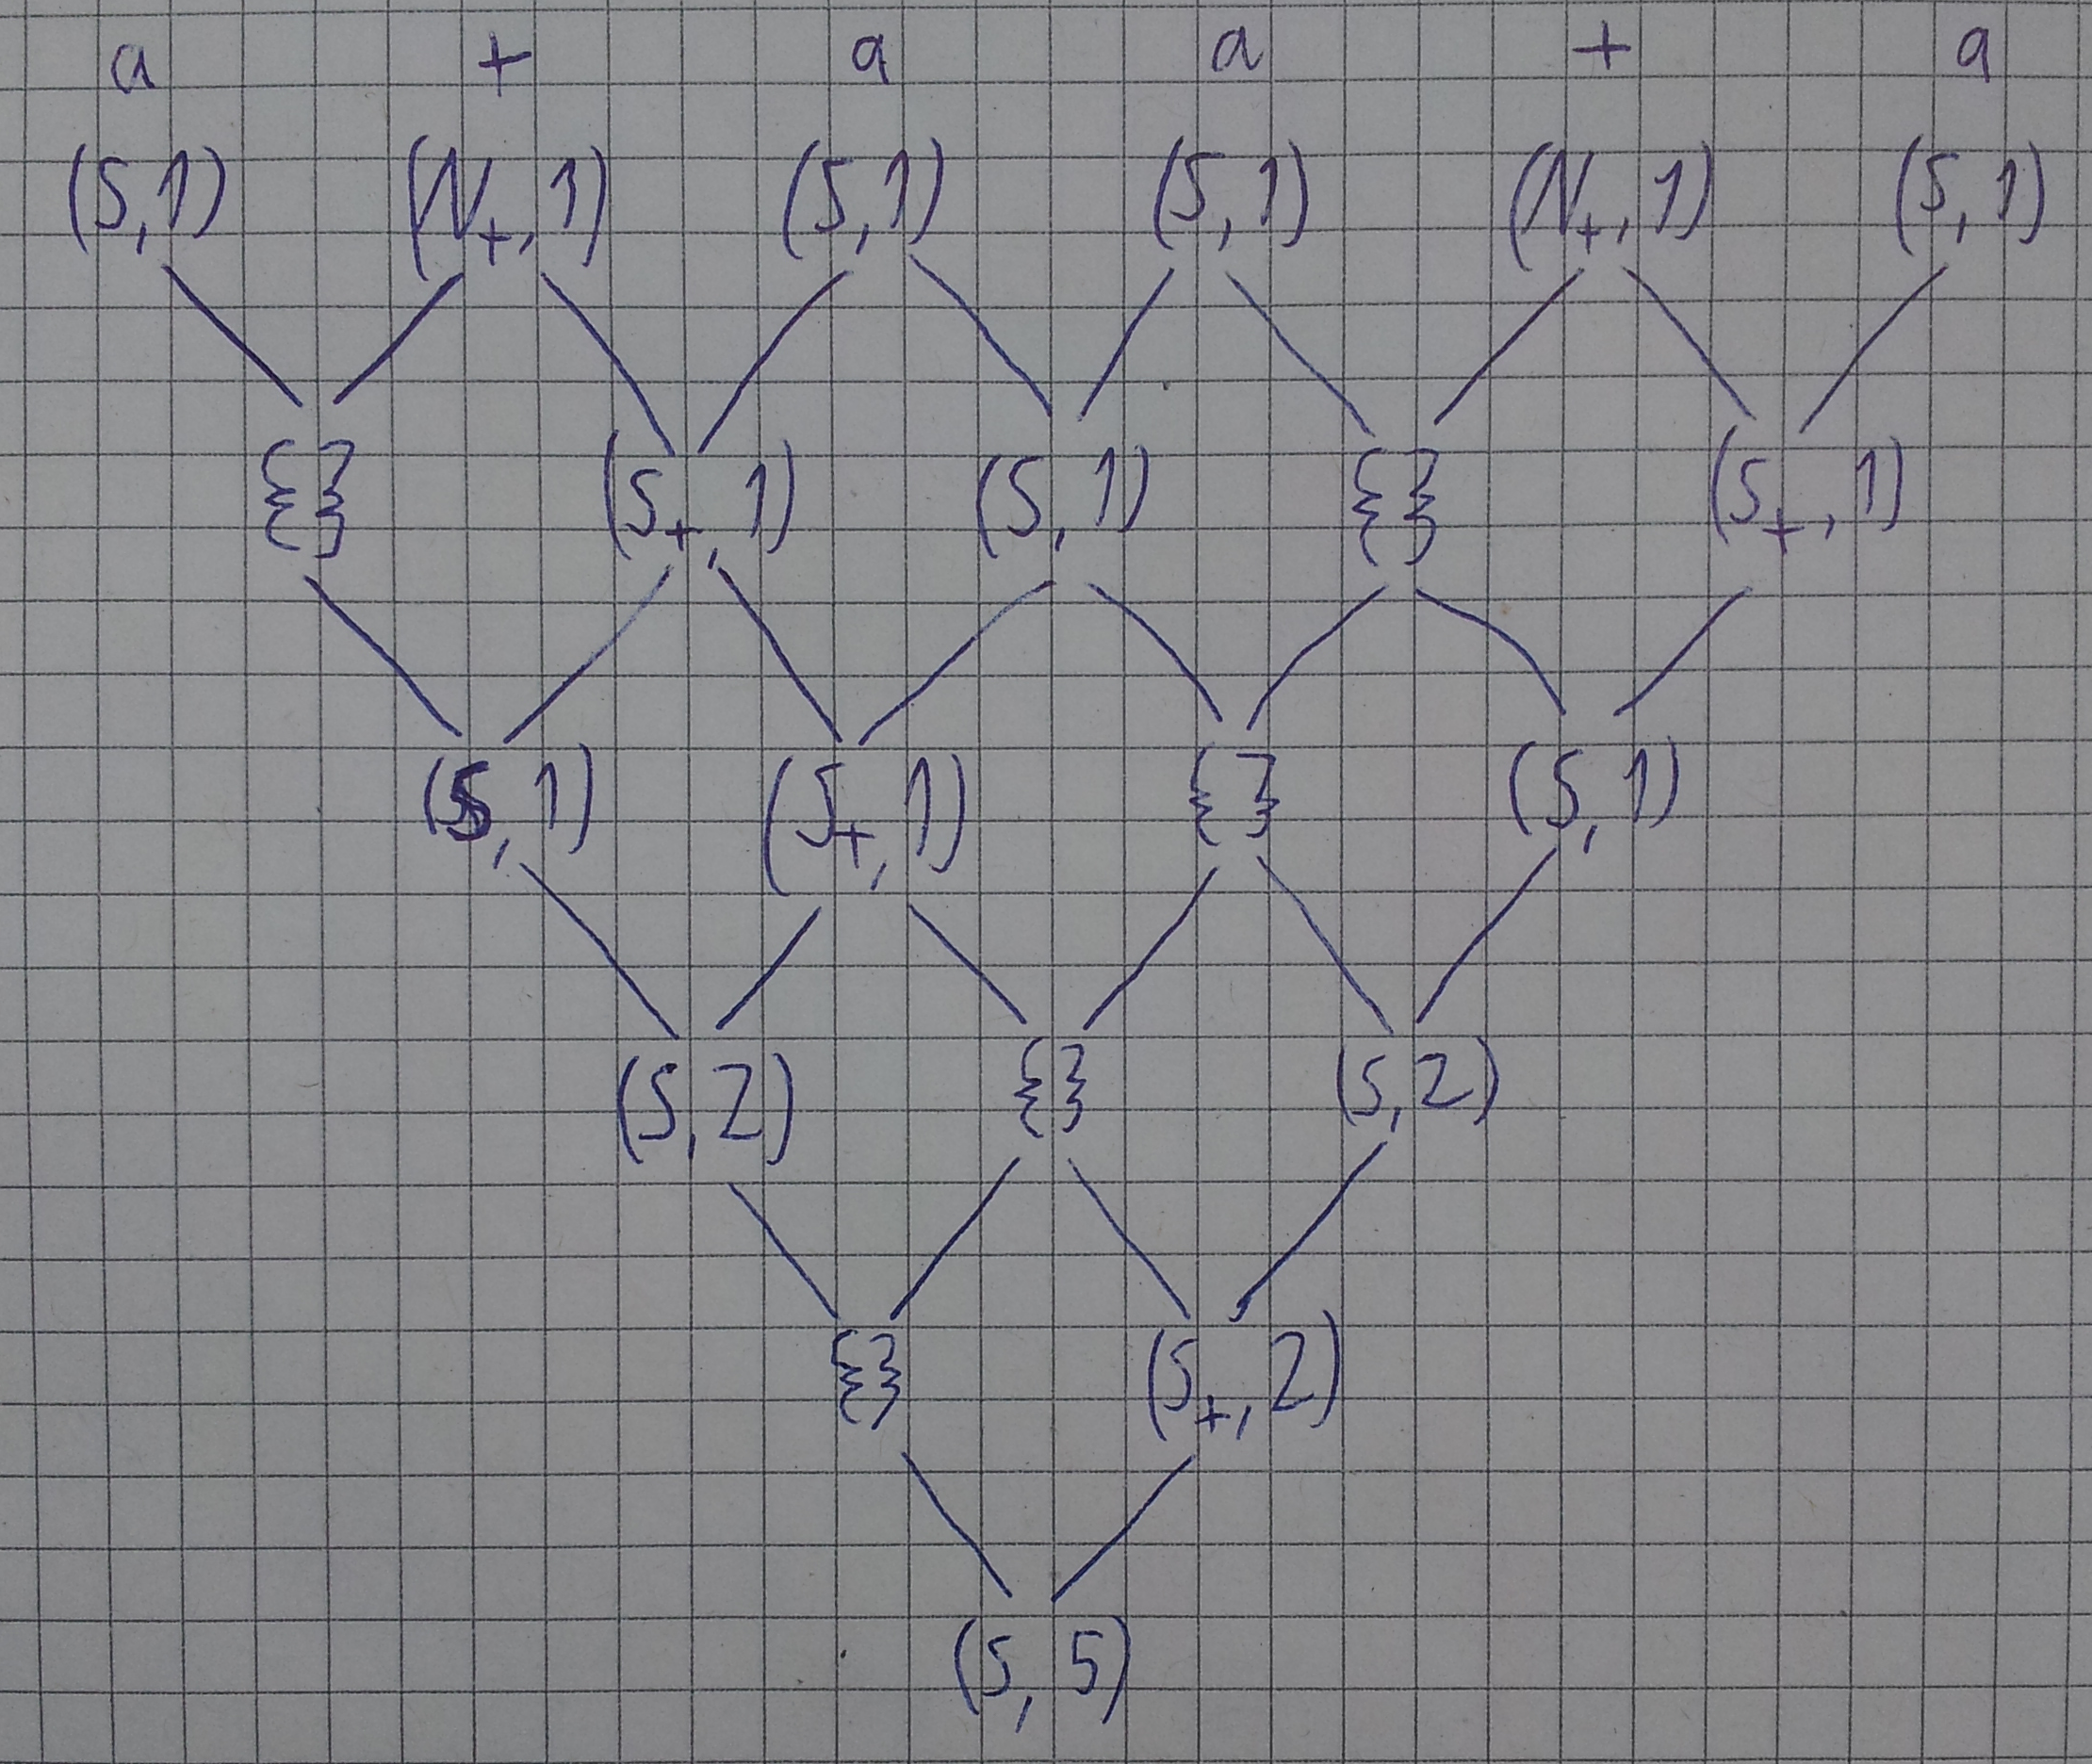 a + a a + a
(S,1) (N₊,1) (S,1) (S,1) (N₊,1) (S,1)
{} (S₊,1) (S,1) {} (S₊,1)
(S,1) (S₊,1) {} (S,1)
(S,2) {} (S,2)
{} (S₊,2)
(S,5)